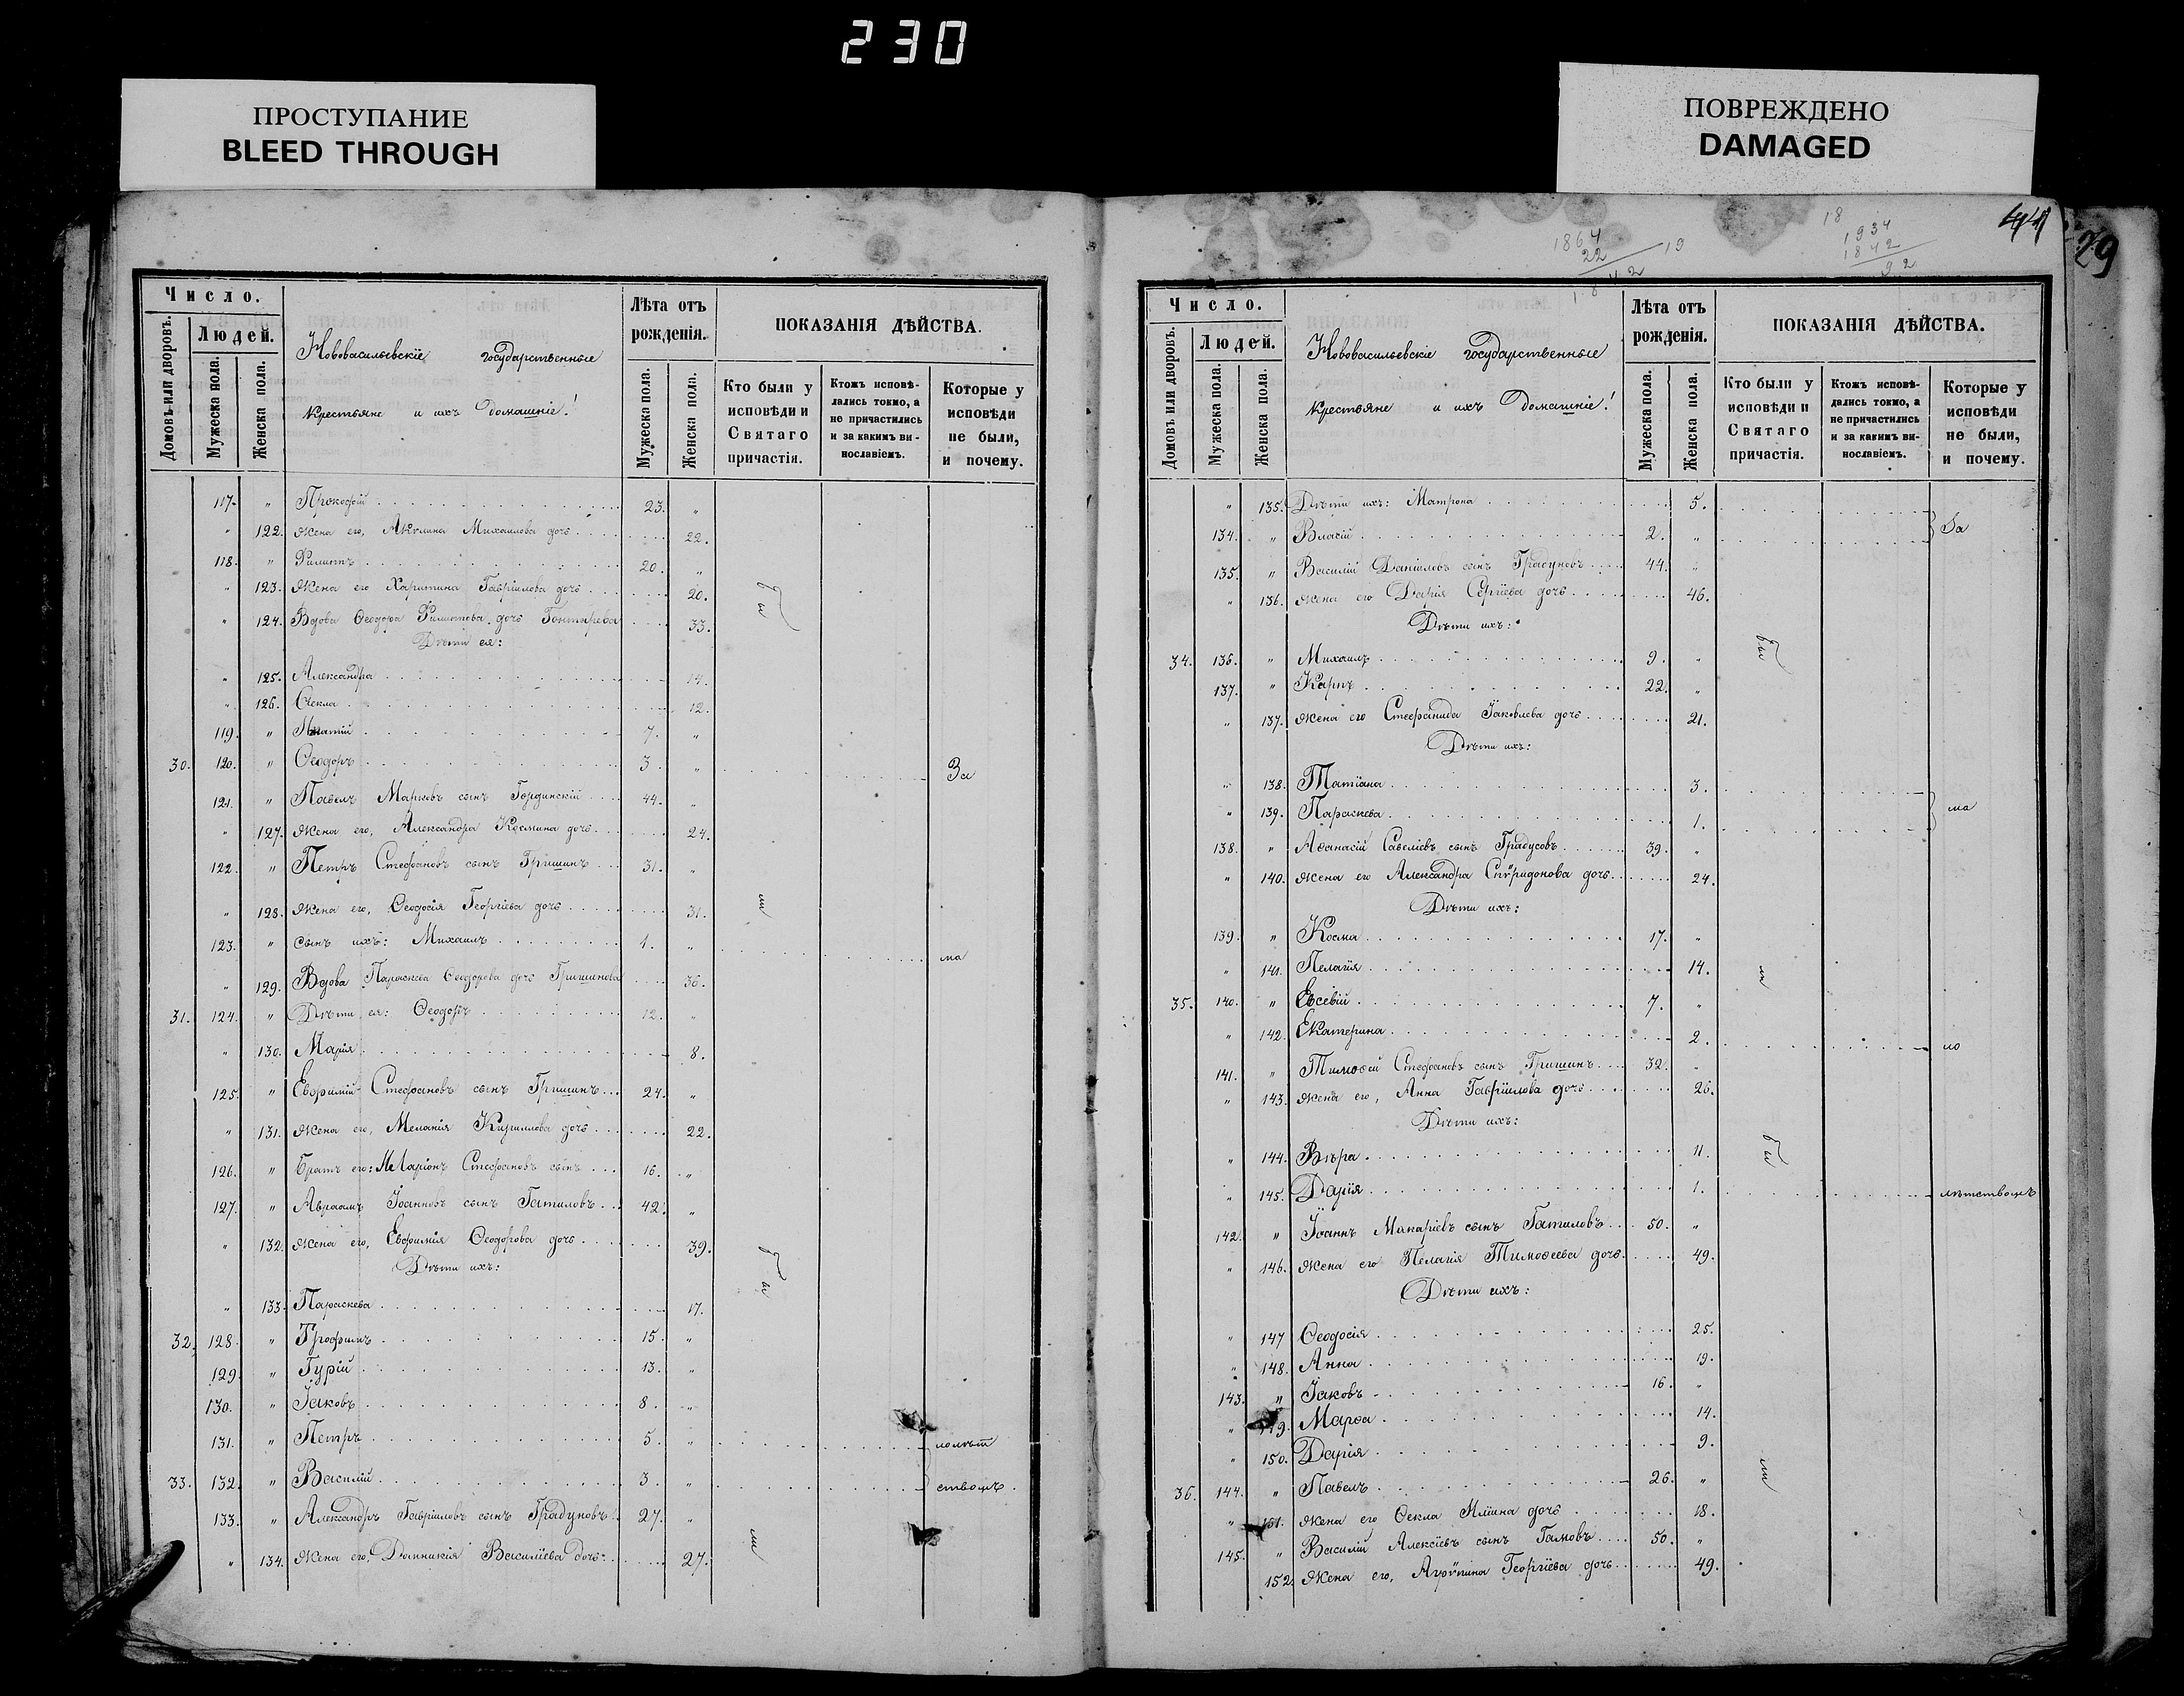 230
ПРОСТУПАНИЕ
BLEED THROUGH
ПОВРЕЖДЕНО
DAMAGED
Число.
Домовъ или дворовъ.
Людей.
Мужеска пола.
Женска пола.
Нововасильевскіе государственные
крестьяне и ихъ домашніе!
Лѣта отъ
рожденія.
Мужеска пола.
Женска пола.
ПОКАЗАНІЯ ДѢЙСТВА.
Кто были у
исповѣди и
Святаго
причастія.
Ктожъ исповѣ-
дались токмо, а
не причастились
и за какимъ ви-
нословіемъ.
Которые у
исповѣди
не были,
и почему.
117. " Прокофій 23. "
" 122. Жена его, Акилина Михаилова дочь 22.
118. " Филиппъ 20. "
" 123. Жена его Харитина Гавріилова дочь 20.
бы
" 124. Вдова Ѳеодора Филиппова дочь 33.
Дѣти ея:
" 125. Александра 14.
" 126. Ѳекла 12.
119. " 7. "
30. 120. " Ѳеодоръ 3. " За
121. " Павелъ Марковъ сынъ Гординскій 44. "
" 127. Жена его, Александра Космина дочь 24.
122. " Петръ Стефановъ сынъ Гришинъ 31. "
" 128. Жена его, Ѳеодосія Георгіева дочь 31.
123. " сынъ ихъ: Михаилъ 1. " ма
" 129. Вдова Параскева Ѳеодорова дочь Гришинова 36.
31. 124. " Дѣти ея: Ѳеодоръ 12. "
" 130. Марія 8.
125. " Евфимій Стефановъ сынъ Гришинъ 24. "
" 131. Жена его, Меланія Кириллова дочь 22.
126. " Братъ его: Иларіонъ Стефановъ сынъ 16. "
127. " Авраамъ Іоанновъ сынъ Гатиловъ 42. "
" 132. Жена его, Евфимія Ѳеодорова дочь 39.
Дѣти ихъ:
бы
" 133. Параскева 17.
32. 128. " Трофимъ 15. "
129. " Гурій 13. "
130. " Іаковъ 8. "
131. " Петръ 5. " лолѣт
33. 132. " Василій 3. " ствомъ.
133. " Александръ Гавріиловъ сынъ Градуновъ 27. "
" 134. Жена его, Домникія Василіева дочь 27.
1864
22
1842
19
18
1934
1842
92
44
29
Число.
Домовъ или дворовъ.
Людей.
Мужеска пола.
Женска пола.
Нововасильевскіе государственные
крестьяне и ихъ домашніе!
Лѣта отъ
рожденія.
Мужеска пола.
Женска пола.
ПОКАЗАНІЯ ДѢЙСТВА.
Кто были у
исповѣди и
Святаго
причастія.
Ктожъ исповѣ-
дались токмо, а
не причастились
и за какимъ ви-
нословіемъ.
Которые у
исповѣди
не были,
и почему.
" 135. Дѣти ихъ: Матрона 5.
За
134. " Власій 2. "
135. " Василій Даніиловъ сынъ Градуновъ 44. "
" 136. Жена его Дарія Сергіева дочь 46.
Дѣти ихъ:
бы
34. 136. " Михаилъ 9. "
137. " Карпъ 22. "
" 137. Жена его Стефанида Іаковлева дочь 21.
Дѣти ихъ:
" 138. Татіана 3.
ма
" 139. Параскева 1.
138. " Аѳанасій Савеліевъ сынъ Градусовъ 39. "
" 140. Жена его Александра Спиридонова дочь 24.
Дѣти ихъ:
139. " Косма 17. "
" 141. Пелагія 14.
35. 140. " Евсевій 7. "
" 142. Екатерина 2. ло
141. " Тимоѳей Стефановъ сынъ Гришинъ 32. "
" 143. Жена его, Анна Гавріилова дочь 26.
Дѣти ихъ:
бы
" 144. Вѣра 11.
" 145. Дарія 1. лѣтствомъ
142. " Іоаннъ Макаріевъ сынъ Гатиловъ 50. "
" 146. Жена его Пелагія Тимоѳеева дочь 49.
Дѣти ихъ:
" 147 Ѳеодосія 25.
" 148. Анна 19.
143. " Іаковъ 16. "
" 149. Марѳа 14.
" 150. Дарія 9.
36. 144. " Павелъ 26. "
" 151. Жена его Ѳекла Иліина дочь 18.
145. " Василій Алексіевъ сынъ Гамовъ 50. "
152. Жена его, Агрипина Георгіева дочь 49.